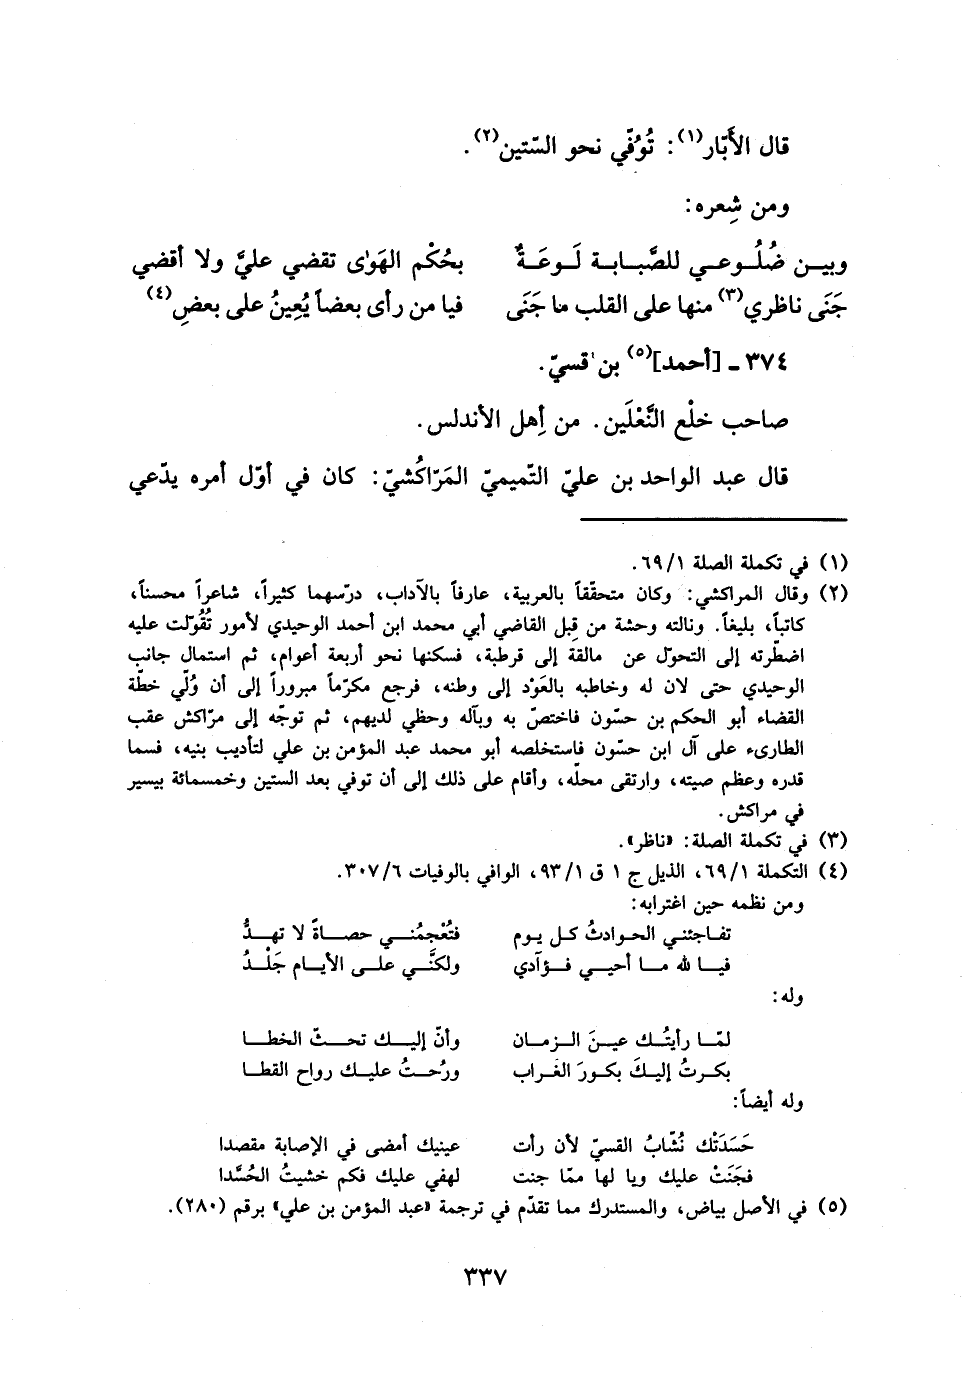 قال الأَبّار(١): تُوُفّي نحو السّتين(٢).
ومن شِعره:
وبيـن ضُلُـوعـي للصَّبـابـة لَـوعَـةٌ بحُكْم الهَوٰى تقضي عليَّ ولا أقضي
جَنَى ناظري(٣) منها على القلب ما جَنَى فيا من رأى بعضاً يُعِينُ على بعضِ(٤)
٣٧٤ ـ [أحمد](٥) بن قسيّ.
صاحب خلْع النَّعْلَين. من أهل الأندلس.
قال عبد الواحد بن عليّ التّميميّ المَرّاكُشيّ: كان في أوّل أمره يدّعي
(١) في تكملة الصلة ٦٩/١.
(٢) وقال المراكشي: وكان متحقّقاً بالعربية، عارفاً بالآداب، درّسهما كثيراً، شاعراً محسناً،
كاتباً، بليغاً. ونالته وحشة من قِبل القاضي أبي محمد ابن أحمد الوحيدي لأمور تُقُوّلت عليه
اضطّرته إلى التحوّل عن مالقة إلى قرطبة، فسكنها نحو أربعة أعوام، ثم استمال جانب
الوحيدي حتى لان له وخاطبه بالعَوْد إلى وطنه، فرجع مكرّماً مبروراً إلى أن وُلّي خطّة
القضاء أبو الحكم بن حسّون فاختصّ به وبآله وحظي لديهم، ثم توجّه إلى مرّاكش عقب
الطارىء على آل ابن حسّون فاستخلصه أبو محمد عبد المؤمن بن علي لتأديب بنيه، فسما
قدره وعظم صيته، وارتقى محلّه، وأقام على ذلك إلى أن توفي بعد الستين وخمسمائة بيسير
في مراكش.
(٣) في تكملة الصلة: «ناظر».
(٤) التكملة ٦٩/١، الذيل ج ١ ق ٩٣/١، الوافي بالوفيات ٣٠٧/٦.
ومن نظمه حين اغترابه:
تفـاجئنـي الحـوادثُ كـل يـوم فتُعْجمُنـي حصـاةً لا تهـدُّ
فيـا لله مـا أحيـي فـؤآدي ولكنَّـي علـى الأيـام جَلْـدُ
وله:
لمّـا رأيتُـك عيـنَ الـزمـان وأنّ إليـك تحـثّ الخطـا
بكـرتُ إليـكَ بكـورَ الغـراب ورُحـتُ عليـك رواح القطـا
وله أيضاً:
حَسَدَتْك نُشّابُ القسيّ لأن رأت عينيك أمضى في الإصابة مقصدا
فجَنَتْ عليك ويا لها ممّا جنت لهفي عليك فكم خشيتُ الحُسَّدا
(٥) في الأصل بياض، والمستدرك مما تقدّم في ترجمة «عبد المؤمن بن علي» برقم (٢٨٠).
٣٣٧